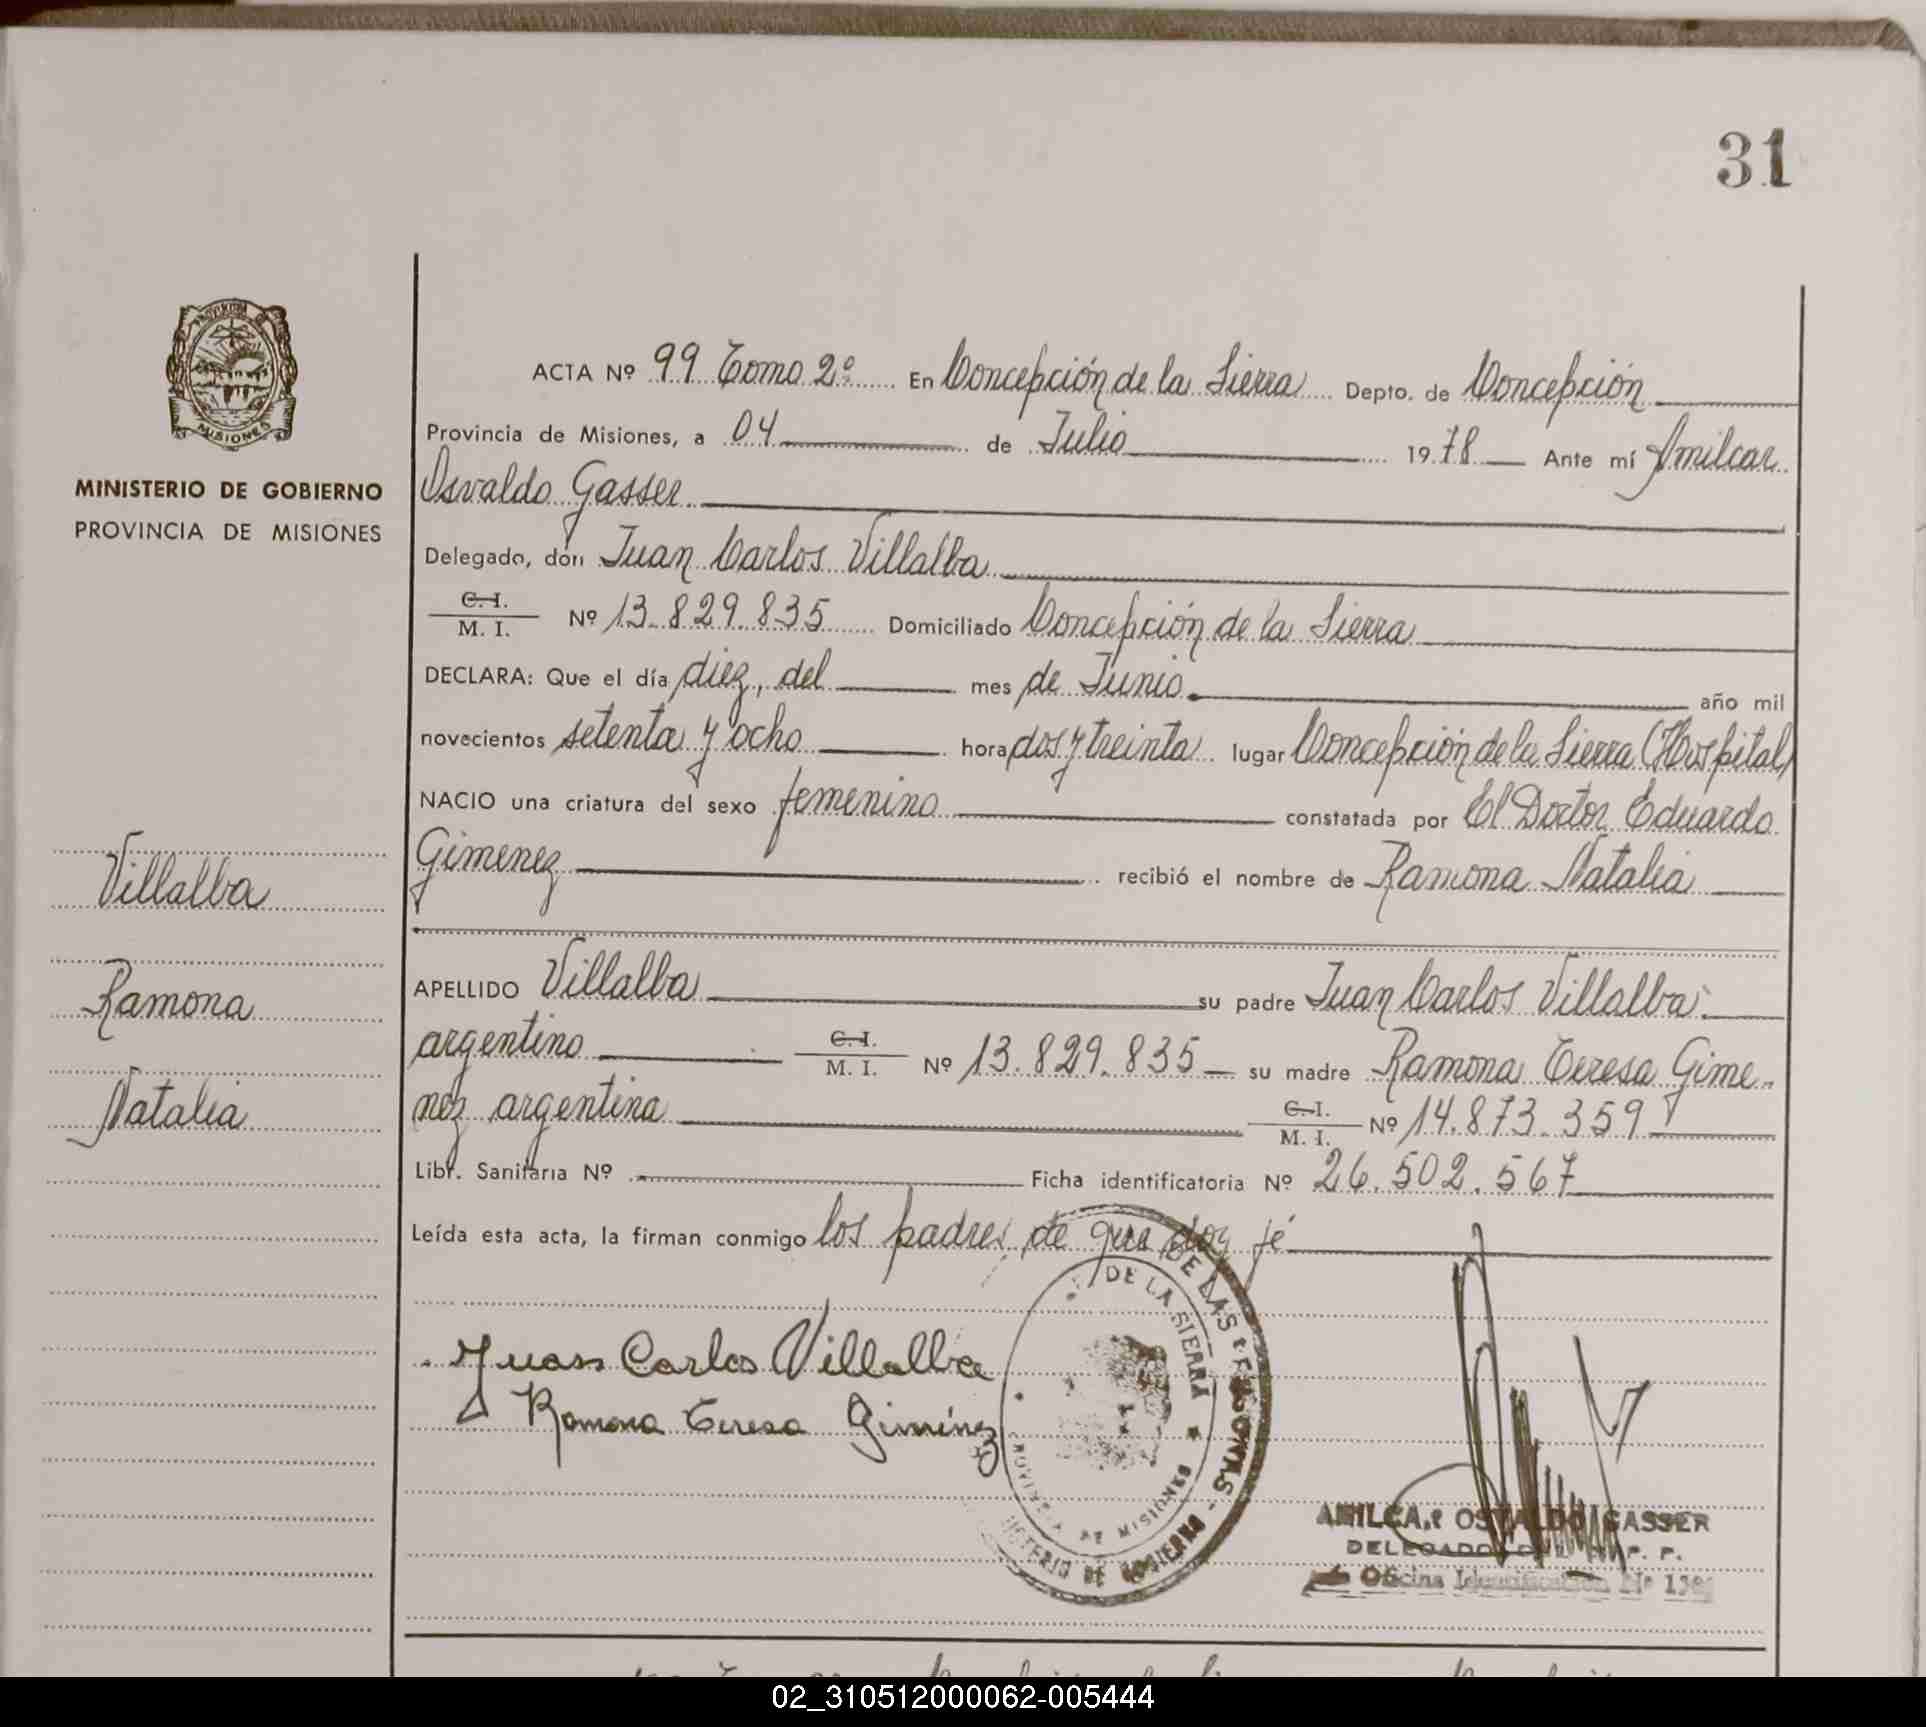 31
MISIONES
MINISTERIO DE GOBIERNO
PROVINCIA DE MISIONES
Villalba
Ramona
Natalia
ACTA Nº 99 Tomo 2º En Concepción de la Sierra Depto. de Concepción
Provincia de Misiones, a 04 de Julio 1978 Ante mí Amilcar
Osvaldo Gasser
Delegado, don Juan Carlos Villalba
C. I.
M. I. Nº 13.829.835 Domiciliado Concepción de la Sierra
DECLARA: Que el día diez, del mes de Junio año mil
novecientos setenta y ocho hora dos y treinta lugar Concepción de la Sierra (Hospital)
NACIO una criatura del sexo femenino constatada por El Doctor Eduardo
Gimenez recibió el nombre de Ramona Natalia
APELLIDO Villalba su padre Juan Carlos Villalba
argentino C. I.
M. I. Nº 13.829.835 su madre Ramona Teresa Gime
nez argentina C. I.
M. I. Nº 14.873.359
Libr. Sanitaria Nº Ficha identificatoria Nº 26.502.567
Leída esta acta, la firman conmigo los padres de que doy fé
Juan Carlos Villalba
Ramona Teresa Giménez
DE LAS PERSONAS - MINISTERIO DE GOBIERNO
DE LA SIERRA
PROVINCIA DE MISIONES
AMILCAR OSVALDO GASSER
DELEGADO R. P. P.
Oficina Identificación Nº
02_310512000062-005444